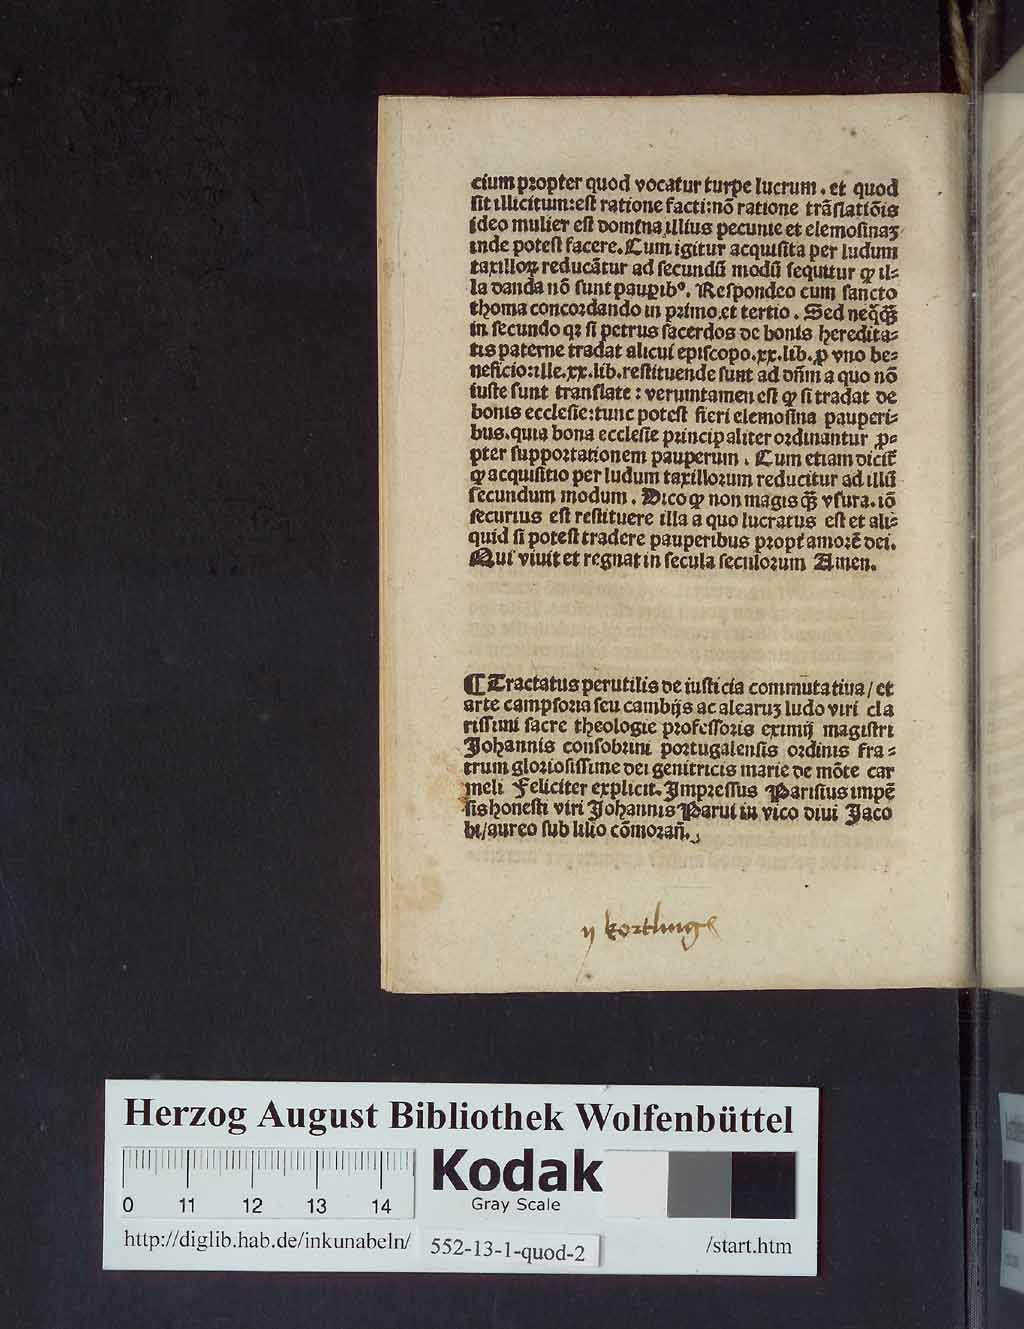 cium propter quod vocatur turpe lucrum. et quod
sit illicitum: est ratione facti: nō ratione trāslatiōis
ideo mulier est domina illius pecunie et elemosinaꝫ
inde potest facere. Cum igitur acquisita per ludum
taxilloꝝ reducātur ad secundū modū sequitur ꝙ il⸗
la danda nō sunt pauꝑibꝰ. Respondeo cum sancto
thoma concordando in primo. et tertio. Sed neq̄ꝗ̄
in secundo qꝛ si petrus sacerdos de bonis heredita⸗
tis paterne tradat alicui episcopo .xx. lib. ꝓ vno be⸗
neficio: ille .xx. lib. restituende sunt ad dn̄m a quo nō
iuste sunt translate: verumtamen est ꝙ si tradat de
bonis ecclesie: tunc potest fieri elemosina pauperi⸗
bus. quia bona ecclesie principaliter ordinantur ꝓ⸗
pter supportationem pauperum. Cum etiam dicit̄
ꝙ acquisitio per ludum taxillorum reducitur ad illū
secundum modum. Dico ꝙ non magis ꝗ̄ vsura. iō
securius est restituere illa a quo lucratus est et ali⸗
quid si potest tradere pauperibus propt̄ amorē dei.
Qui viuit et regnat in secula seculorum Amen.
¶ Tractatus perutilis de iusticia commutatiua / et
arte campsoria seu cambijs ac alearuꝫ ludo viri cla
rissimi sacre theologie professoris eximij magistri
Johannis consobrini portugalensis ordinis fra⸗
trum gloriosissime dei genitricis marie de mōte car
meli Feliciter explicit. Impressus Parisius impē
sis honesti viri Johannis Parui in vico diui Jaco
bi / aureo sub lilio cōmorañ.
ij kortlinge
Herzog August Bibliothek Wolfenbüttel
Kodak
Gray Scale
0 11 12 13 14
http://diglib.hab.de/inkunabeln/ 552-13-1-quod-2 /start.htm